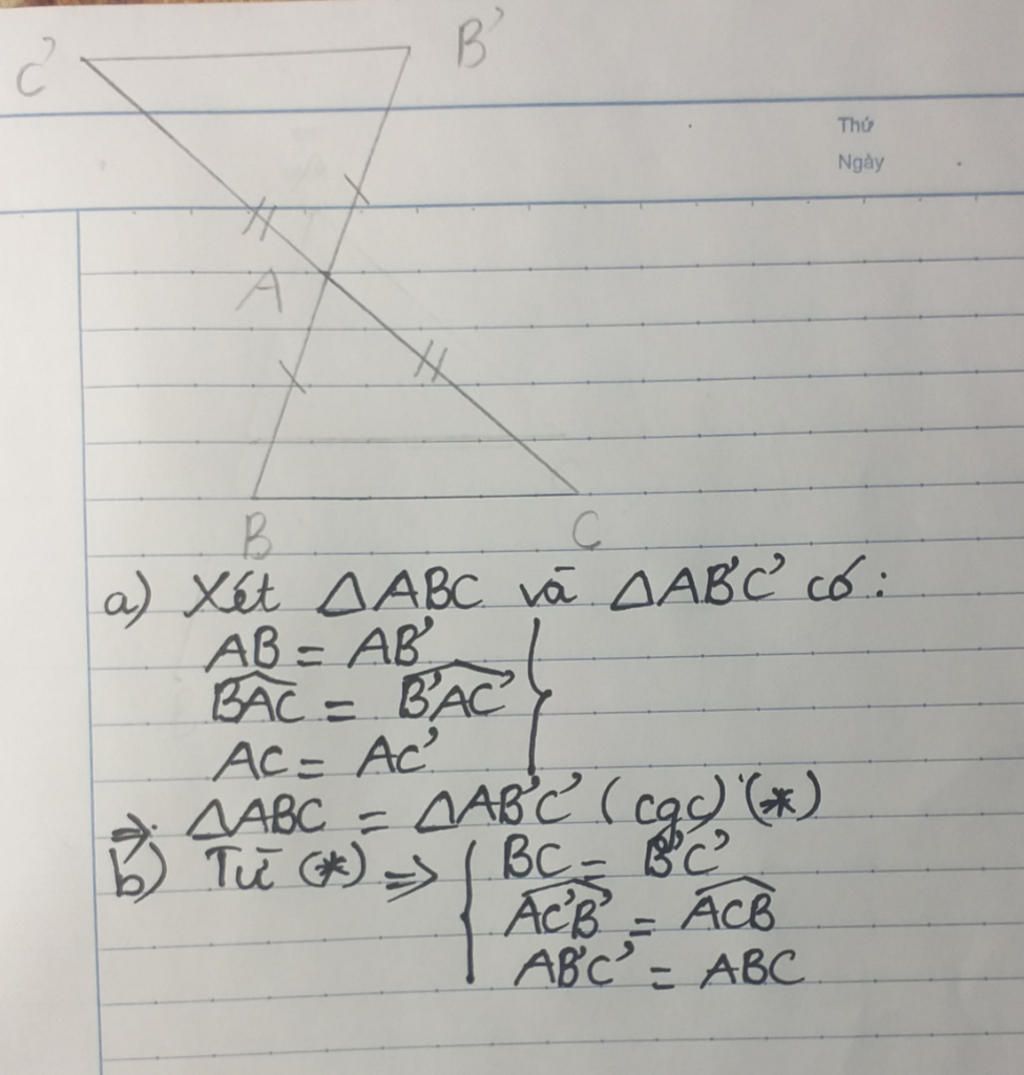 C' B'
Thứ
Ngày
A
B C
a) Xét ΔABC và ΔAB'C' có:
AB = AB'
\widehat{BAC} = \widehat{B'AC'}
AC = AC'
⇒ ΔABC = ΔAB'C' (cgc) (*)
b) Từ (*) ⇒ { BC = B'C'
\widehat{AC'B'} = \widehat{ACB}
AB'C' = ABC